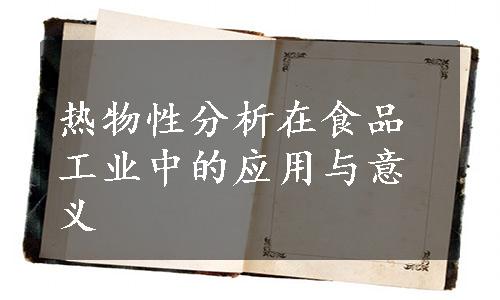 热物性分析在食品
工业中的应用与意
义